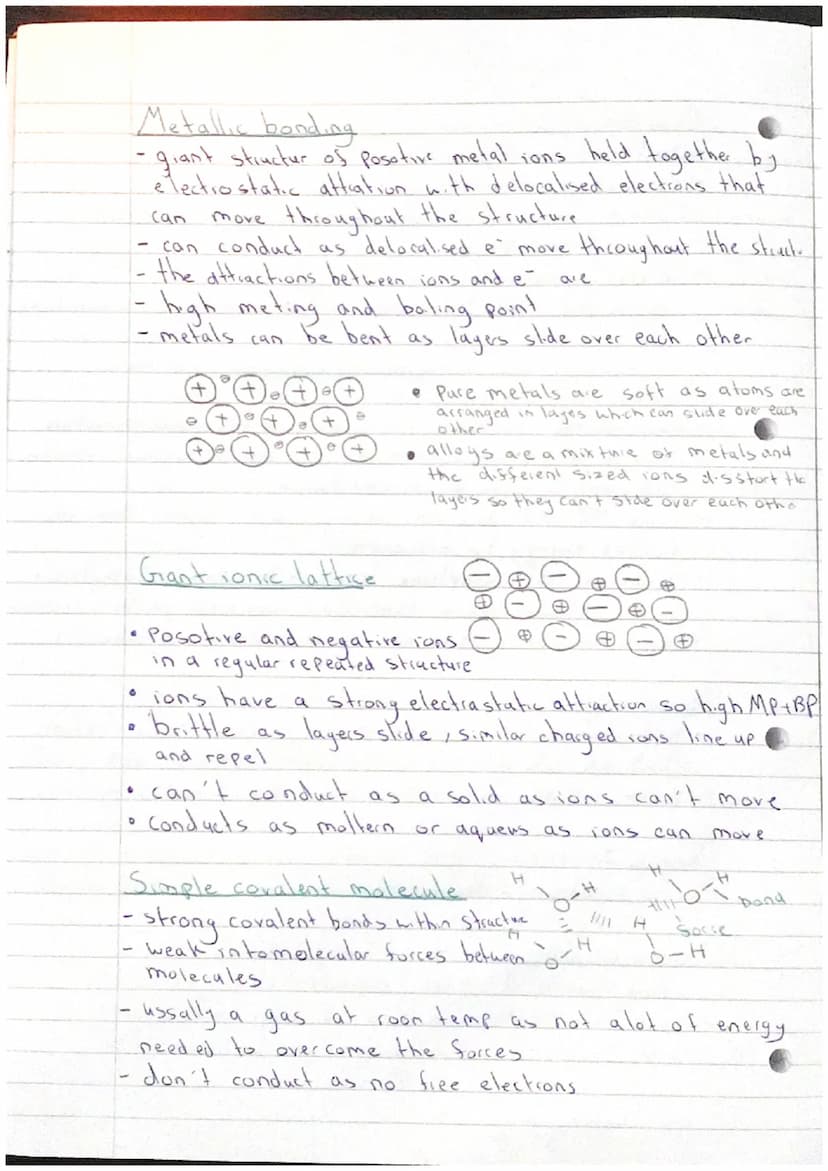 Metallic bonding
- giant structur of posotive metal ions held together by
electrostatic attration with delocalised electrons that
can move throughout the structure
- can conduct as delocalised e⁻ move throughout the struct.
- the attractions between ions and e⁻ are
- high meting and boiling point
- metals can be bent as layers slide over each other
• Pure metals are soft as atoms are
arranged in layes which can slide over each
other
• alloys are a mixture of metals and
the different sized ions disstort the
layers so they can't slide over each othe
Giant ionic lattice
• posotive and negative ions
in a regular repeated structure
• ions have a strong electrastatic attraction so high MP+BP
• brittle as layers slide, similar charged ions line up
and repel
• can't conduct as a solid as ions can't move
• conducts as moltern or aqueus as ions can move
Simple covalent molecule
- strong covalent bonds within structure
- weak intomolecular forces between
molecules
H O H
H O H
H O H
H O - H
bond
force
- ussally a gas at room temp as not alot of energy
needed to overcome the forces
- don't conduct as no free electrons